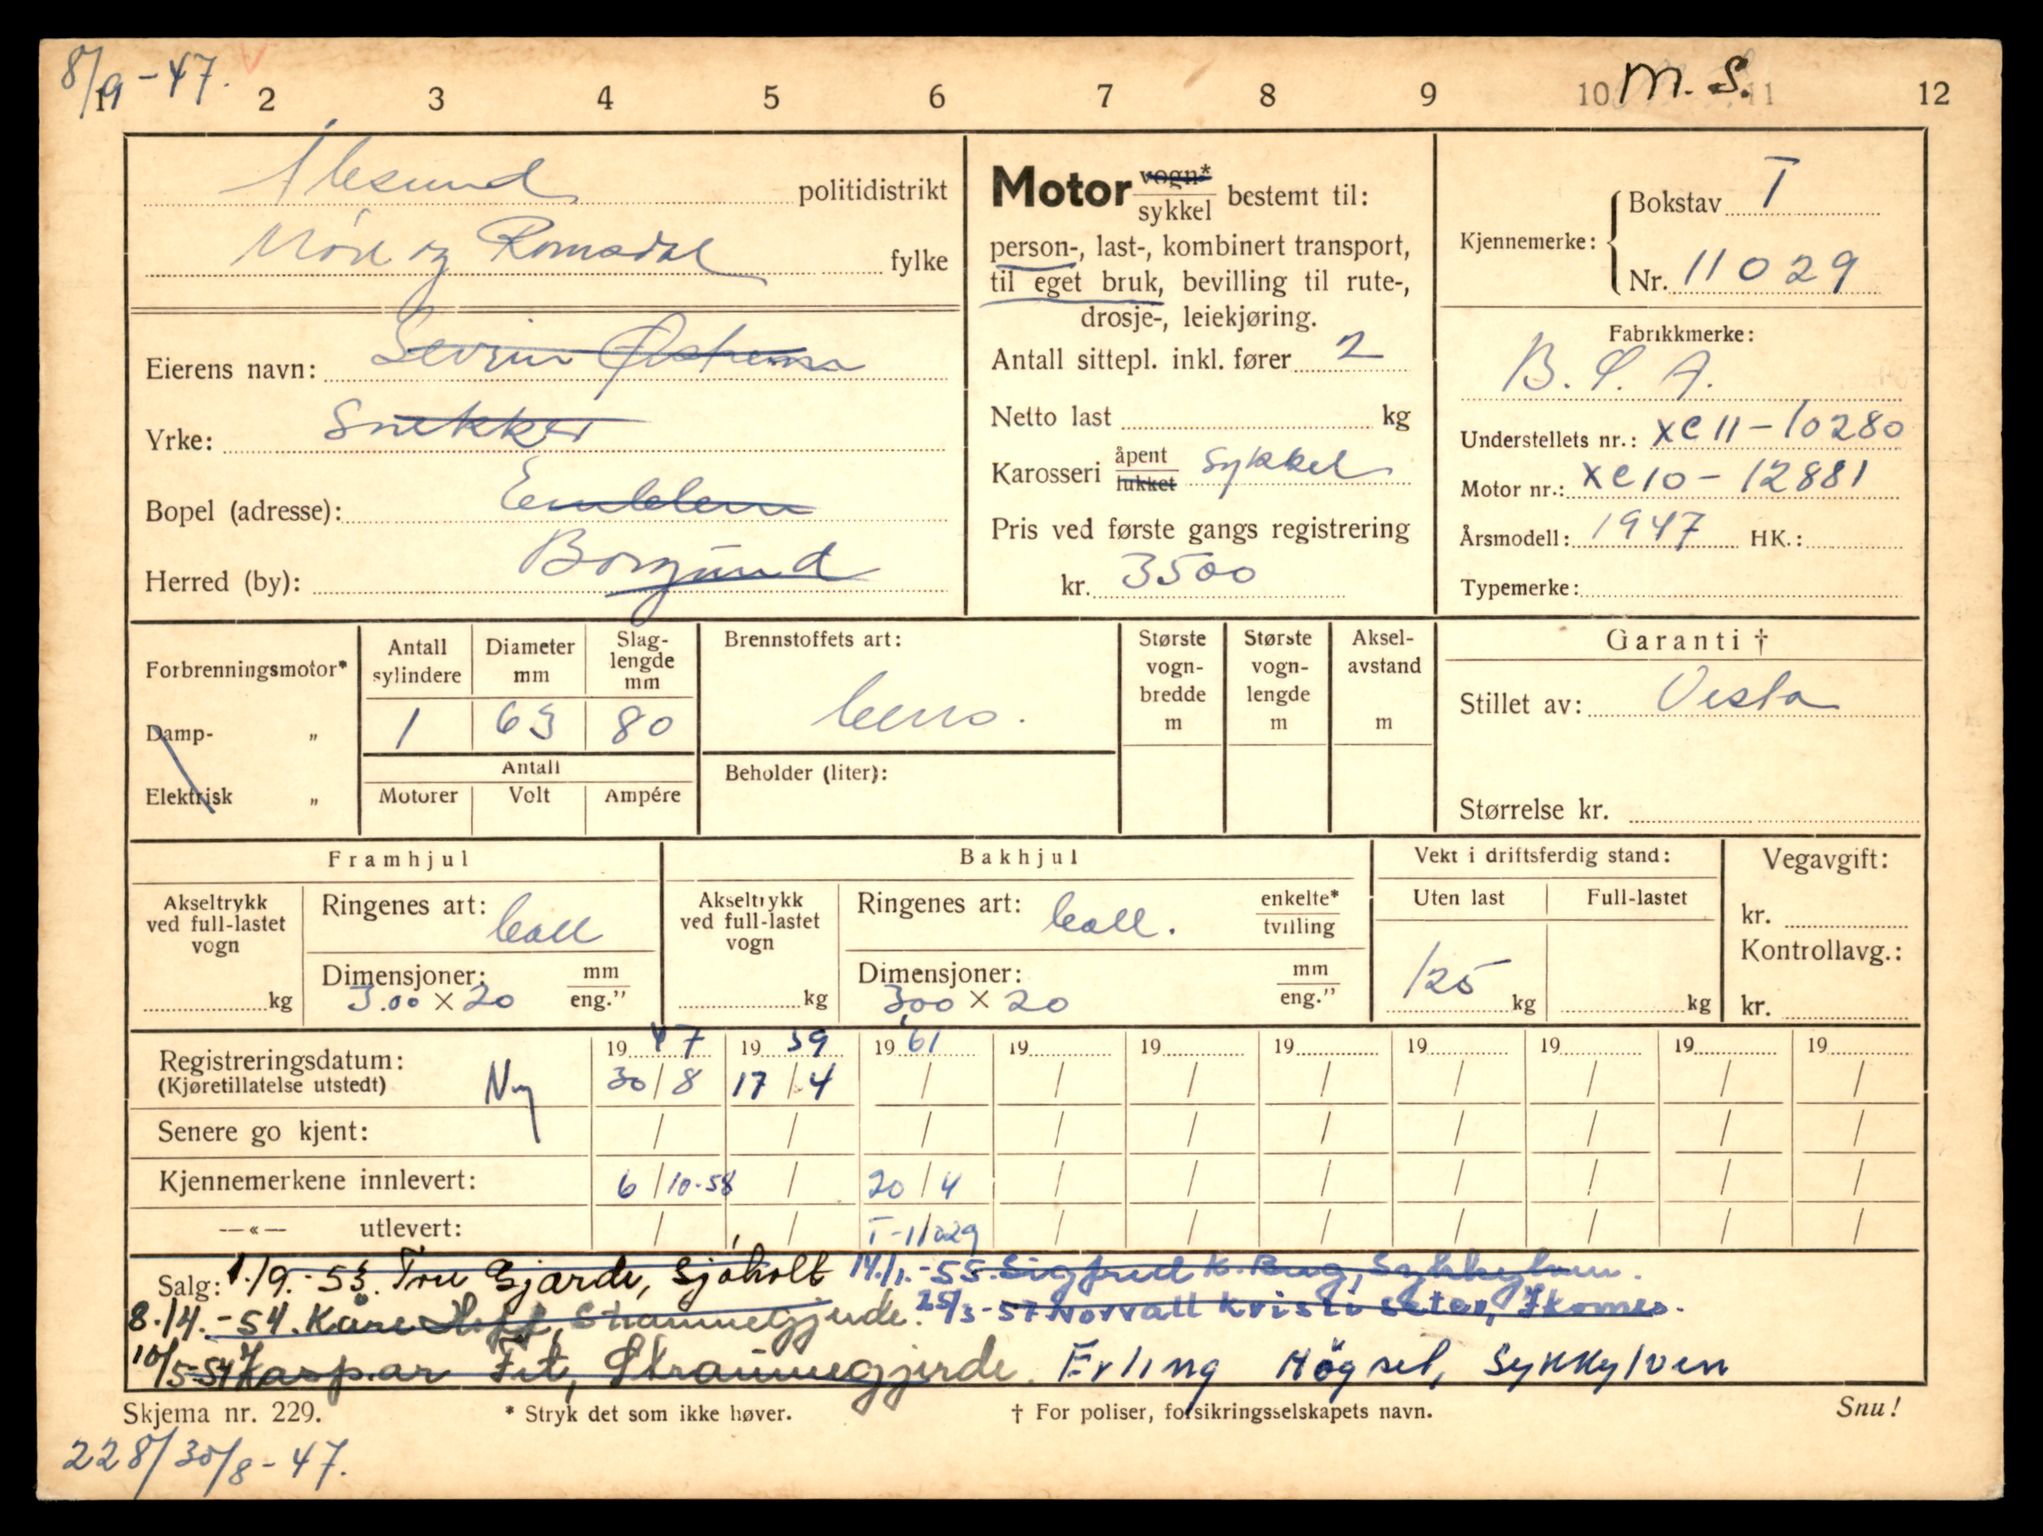 8/9-47. V
1 2 3 4 5 6 7 8 9 10 M. S. 11 12
Ålesund politidistrikt
Møre og Romsdal fylke
Eierens navn: Sevrin
Yrke: Snekker
Bopel (adresse): Emblem
Herred (by): Borgund
Motor vogn* / sykkel bestemt til:
person-, last-, kombinert transport,
til eget bruk, bevilling til rute-,
drosje-, leiekjøring.
Antall sittepl. inkl. fører 2
Netto last kg
Karosseri åpent / lukket sykkel
Pris ved første gangs registrering
kr. 3500
Kjennemerke: Bokstav T
Nr. 11029
Fabrikkmerke:
B. S. A.
Understellets nr.: XC11-10280
Motor nr.: XC10-12881
Årsmodell: 1947 HK.:
Typemerke:
Forbrenningsmotor*
Damp- „
Elektrisk „
Antall sylindere Diameter mm Slag-lengde mm
1 63 80
Antall
Motorer Volt Ampére
Brennstoffets art:
Beholder (liter):
Største vogn-bredde m
Største vogn-lengde m
Aksel-avstand m
Garanti †
Stillet av: Vesta
Størrelse kr.
Framhjul
Akseltrykk ved full-lastet vogn kg
Ringenes art: ball
Dimensjoner: 3.00 x 20 mm / eng."
Bakhjul
Akseltrykk ved full-lastet vogn kg
Ringenes art: ball. enkelte* / tvilling
Dimensjoner: 3,00 x 20 mm / eng."
Vekt i driftsferdig stand:
Uten last Full-lastet
125 kg kg
Vegavgift:
kr.
Kontrollavg.:
kr.
19 47 19 59 19 61 19 19 19 19 19 19 19
Registreringsdatum:
(Kjøretillatelse utstedt) Ny 30/8 17/4 / / / / / / / /
Senere go kjent: / / / / / / / / / /
Kjennemerkene innlevert: 6/10-58 / 20/4 / / / / / / /
—«— utlevert: / / T-11029 / / / / / / /
Salg: 1./9.-53. Tore Gjærde, Sjøholt 14./1.-55. Sigfred K. Bug, Sykkylven.
8./4.-54. Kåre Hoff, Straumegjerde. 25/3-57 Norvall Kristi Seter, Ikornes.
10/5-54 Kaspar Fet, Straumegjerde. Erling Høgsel, Sykkylven
Skjema nr. 229. * Stryk det som ikke høver. † For poliser, forsikringsselskapets navn. Snu!
228/30/8-47.